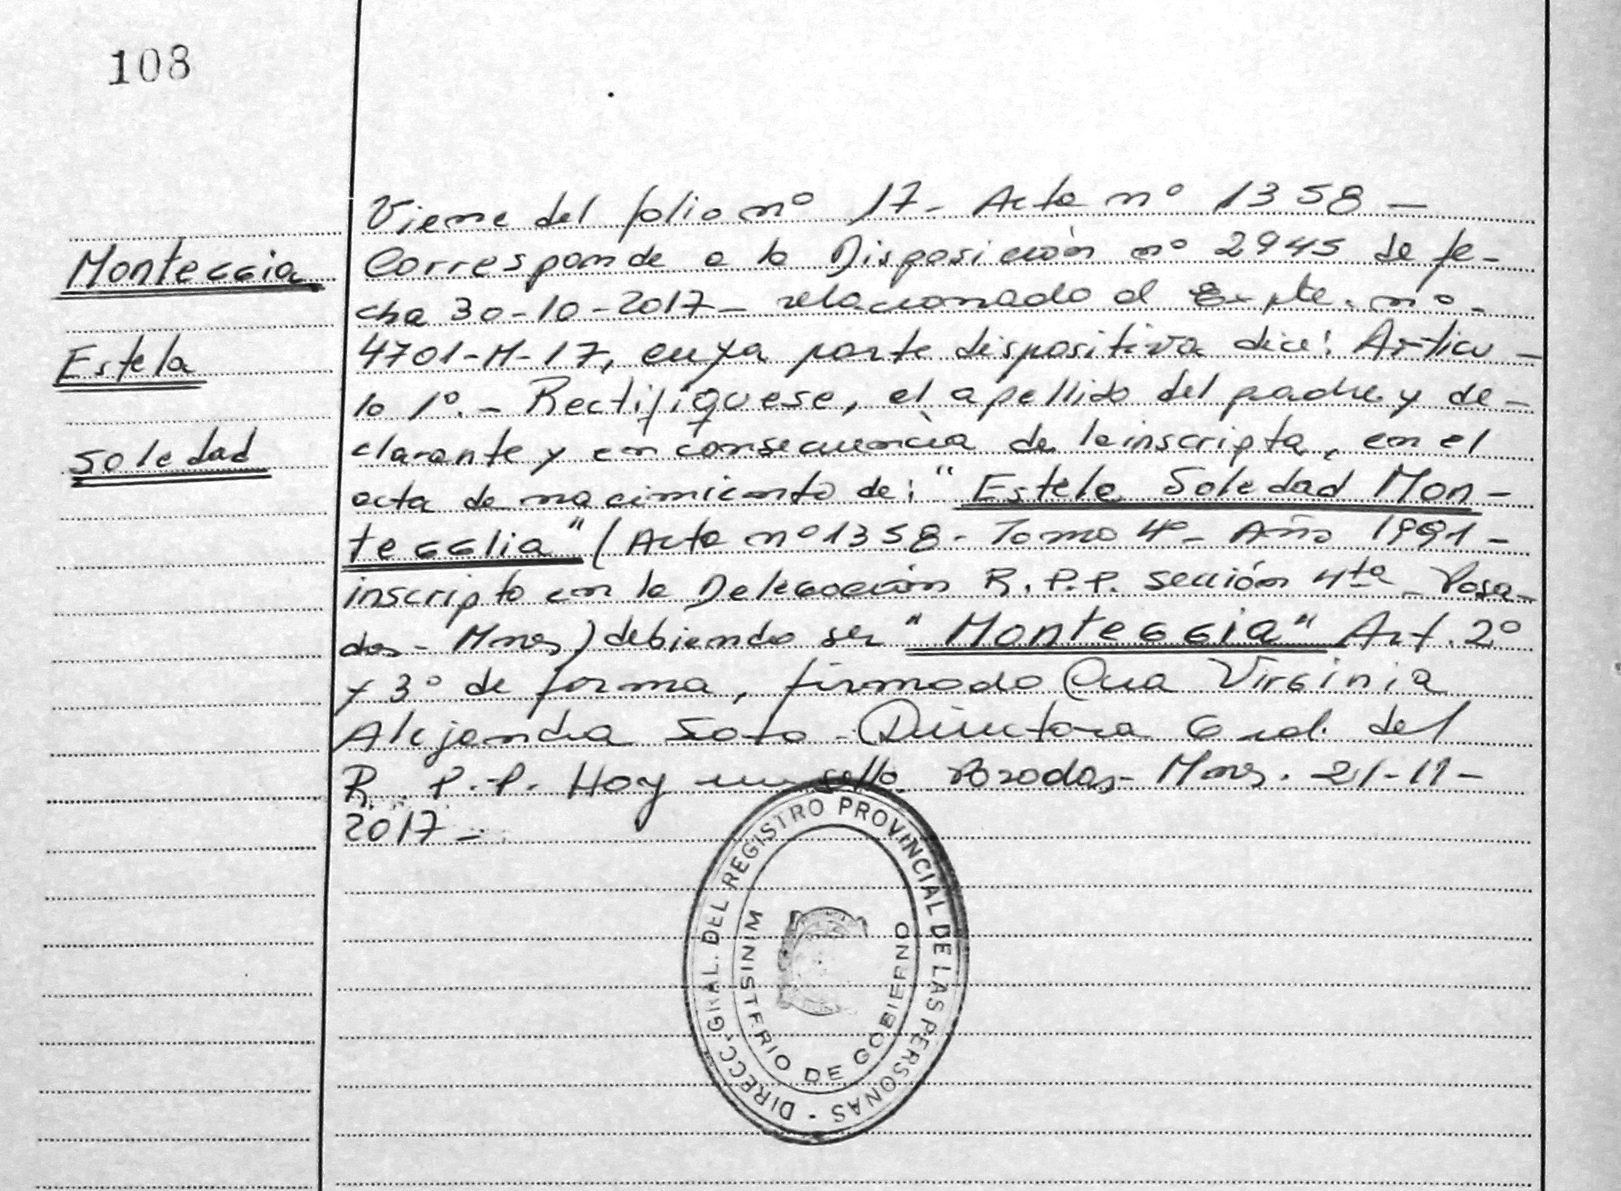 108
Monteggia
Estela
Soledad
Viene del folio nº 17- Acta nº 1358 -
Corresponde a la Disposición nº 2945 de fe-
cha 30-10-2017- relacionado al Expte. nº-
4701-M-17, cuya parte dispositiva dice: Artícu-
lo 1º.- Rectifíquese, el apellido del padre y de-
clarante y en consecuencia de la inscripta, en el
acta de nacimiento de: "Estela Soledad Mon-
tegglia" (Acta nº 1358- Tomo 4º- Año 1991-
inscripto en la Delegación R.P.P. sección 4ta - Posa-
das- Mnes) debiendo ser "Monteggia" Art. 2º
y 3º de forma, firmado Virginia
Alejandra Soto Directora Gral. del
R.P.P. Hoy un sello. Posadas- Mnes. 21-11-
2017-
DIRECC. GRAL. DEL REGISTRO PROVINCIAL DE LAS PERSONAS -
MINISTERIO DE GOBIERNO